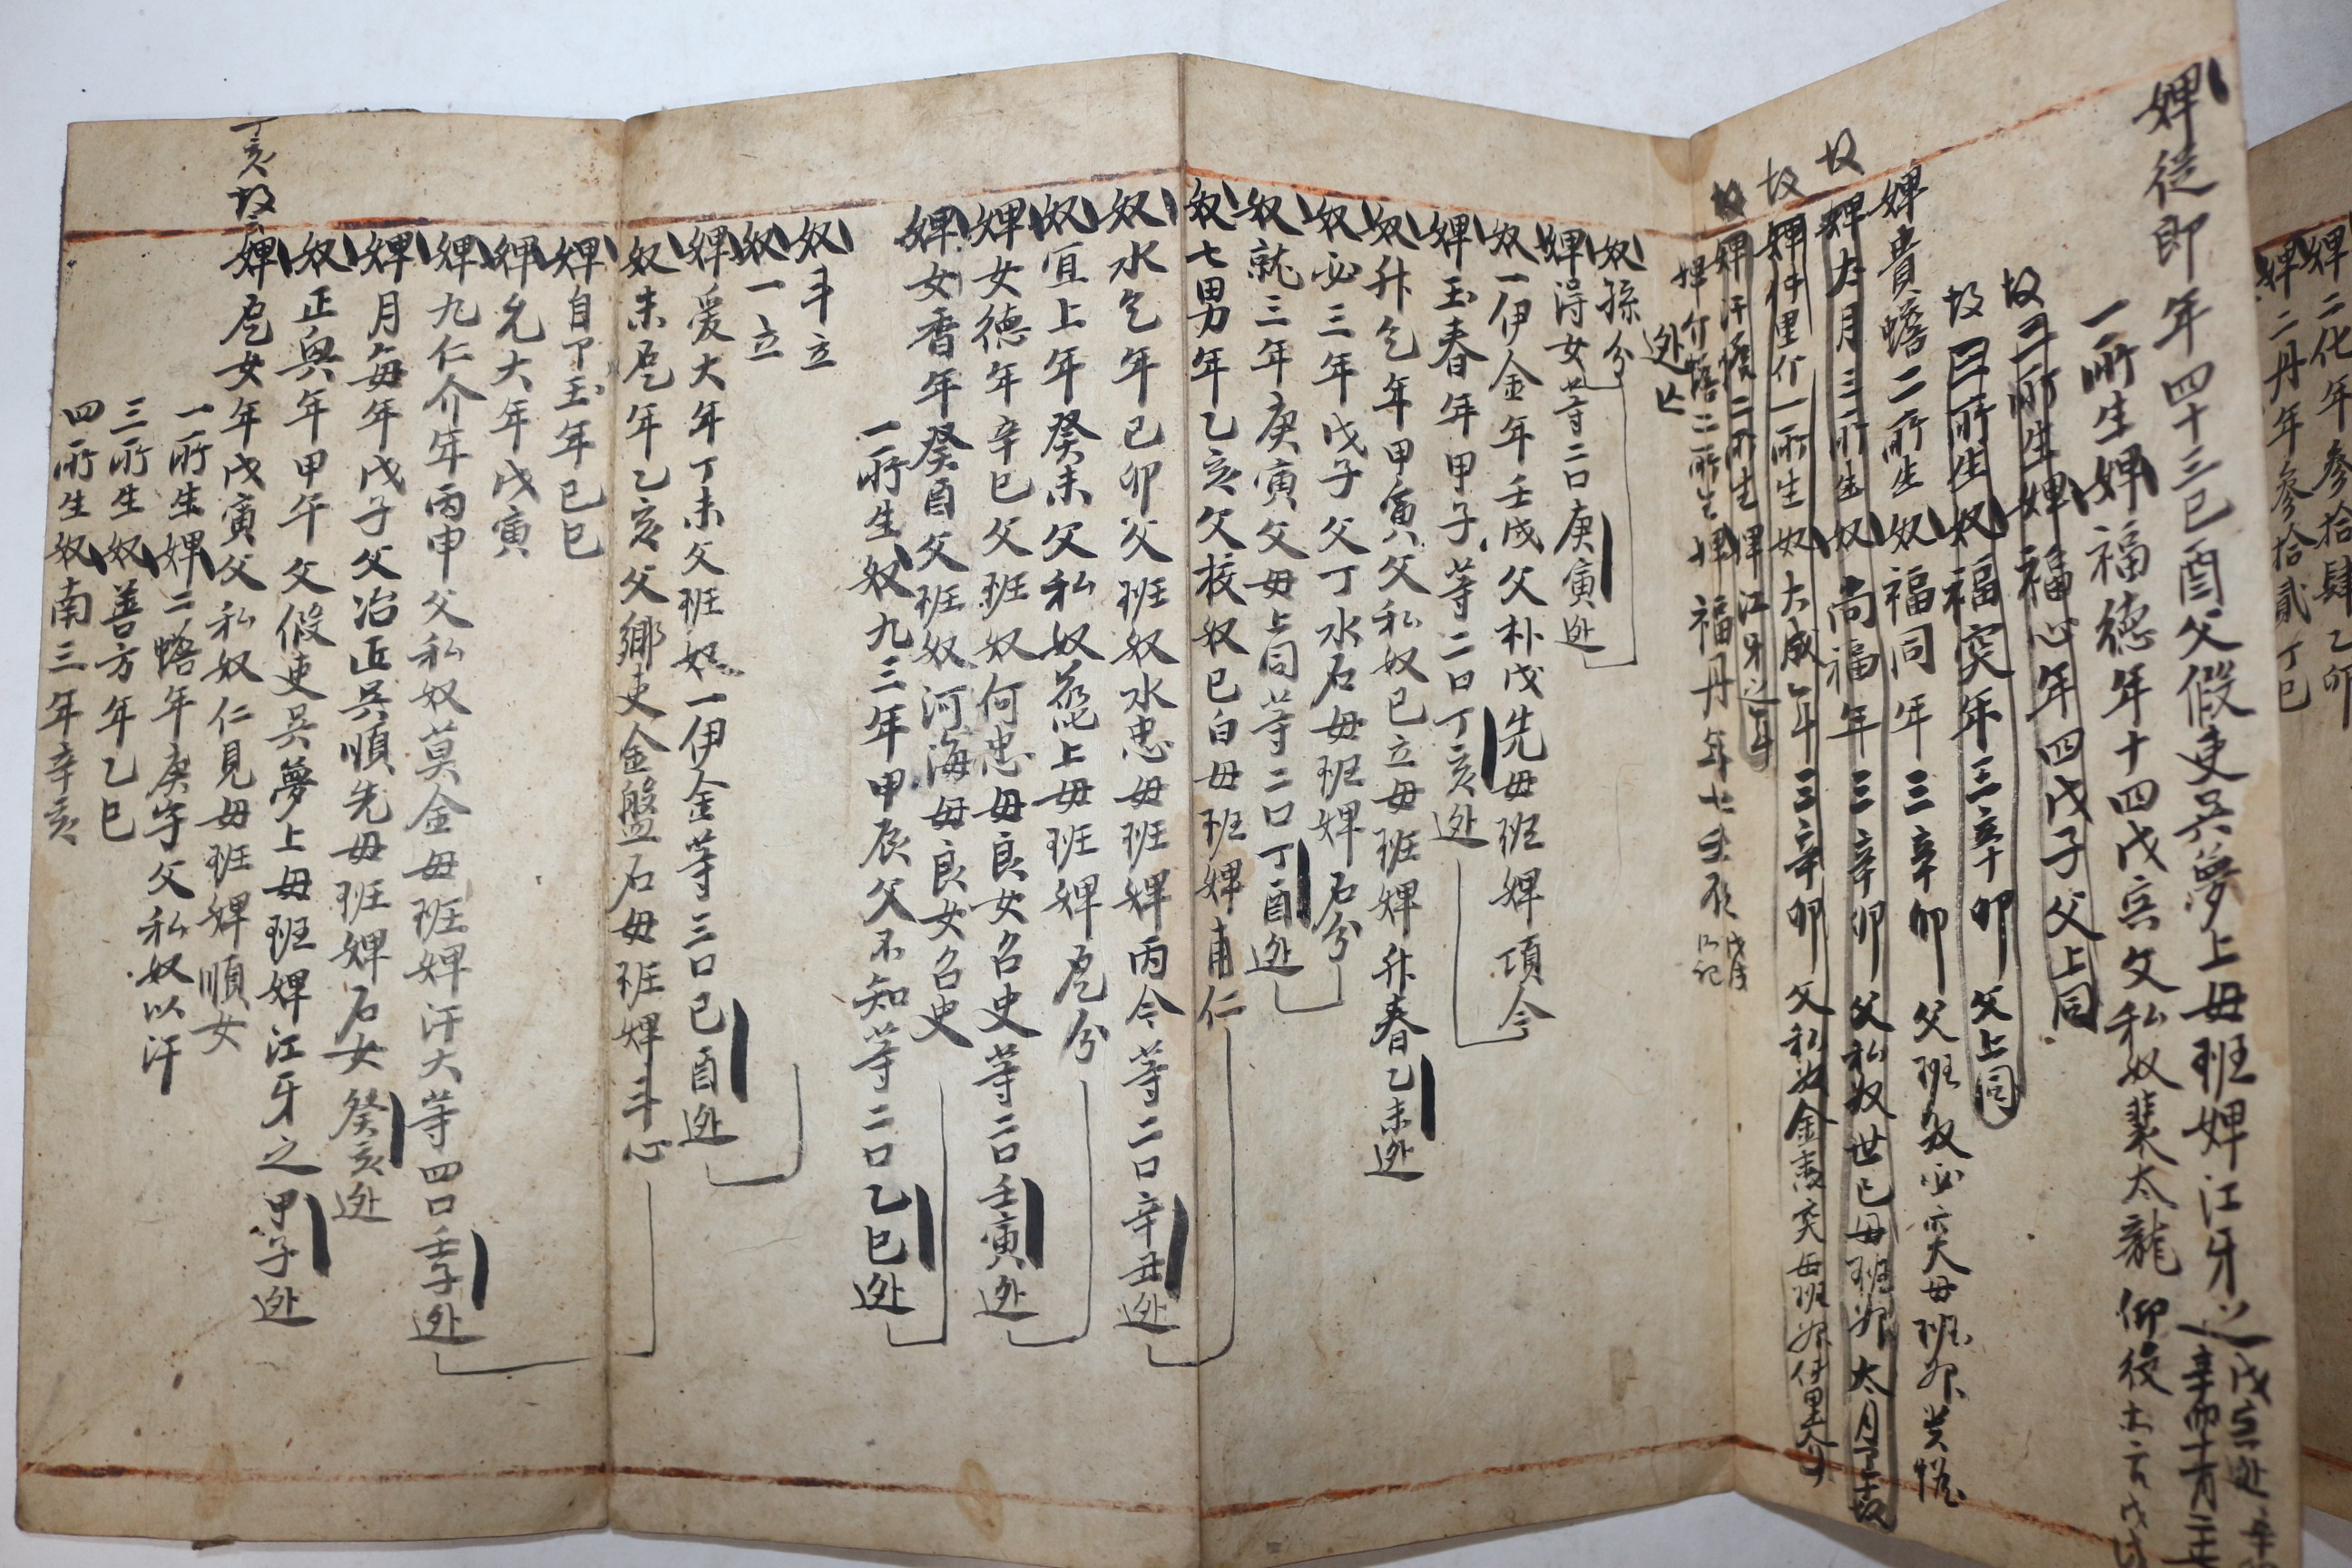 婢二化年參拾肆乙卯
婢二丹年參拾貳丁巳
婢從郎年四十三己酉父假吏吳夢上母班婢江牙之
一所生婢福德年十四戊寅父私奴裴太龍仰役
故二所生婢福心年四戊子父上同
故三所生奴福突年三辛卯父上同
婢貴蟾二所生奴福同年三辛卯父班奴必突母班婢貴蟾
故婢太月三所生奴尚福年三辛卯父私奴世己母班婢太月
故婢件里介一所生奴大威年三辛卯父私奴金夫突母班婢件里介
婢汗蟾二所生婢江牙之年
婢介蟾二所生婢福丹年七壬辰
逃亡
奴孫分
婢淂女等二口庚寅逃
奴一伊金年壬戌父朴戊先母班婢項今
婢玉春年甲子等二口丁亥逃
奴升乞年甲寅父私奴已立母班婢升春乙未逃
奴必三年戊子父丁水石母班婢石分
奴就三年庚寅父母上同等二口丁酉逃
奴七男年乙亥父校奴已白母班婢甫仁
奴水乞年己卯父班奴水忠母班婢丙今等二口辛丑逃
奴宜上年癸未父私奴㖙上母班婢㖙分
婢女德年辛巳父班奴何忠母良女召史等二口壬寅逃
婢女香年癸酉父班奴河海母良女召史
一所生奴九三年甲辰父不知等二口乙巳逃
奴斗立
奴一立
婢爱大年丁未父班奴一伊金等三口己酉逃
奴未㖙年乙亥父鄕吏金盤石母班婢斗心
婢自丁玉年己巳
婢允大年戊寅
婢九仁介年丙申父私奴莫金母班婢汗大等四口壬子逃
婢月每年戊子父冶匠吳順先母班婢石女癸亥逃
奴正與年甲午父假吏吳夢上母班婢江牙之甲子逃
丁亥故云婢㖙女年戊寅父私奴仁見母班婢順女
一所生婢二蟾年庚子父私奴以汗
三所生奴善方年乙巳
四所生奴南三年辛亥